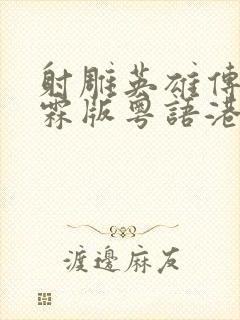 射雕英雄傳
霖版粵語港
渡邊麻友